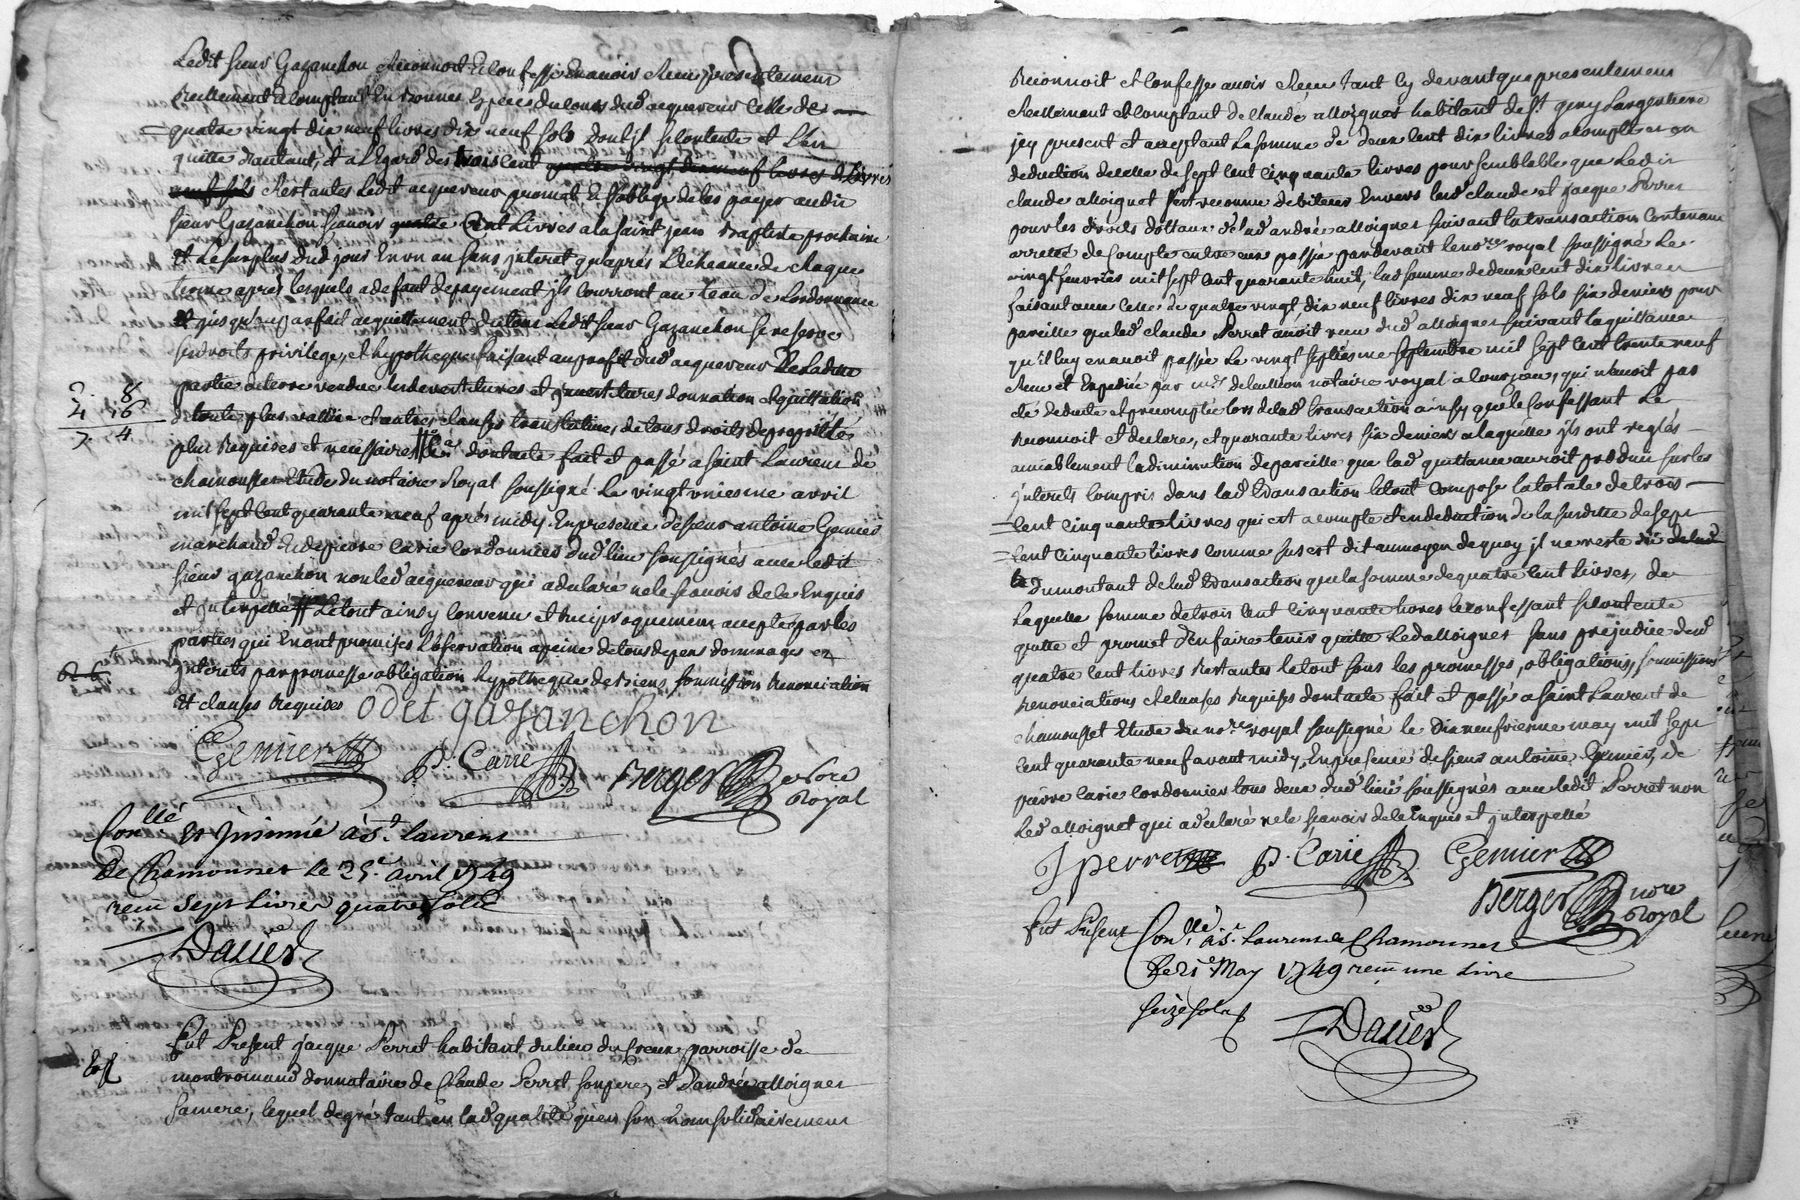 Ledit sieur Gazanchon reconnoit et confesse en avoir receu presentement
reellement et comptant en bonnes espece du cours dud acquereur celle de
quatre vingt dix neuf livres dix neuf sols dont il se contente et l'en
quitte d'autant, et a l'egard des trois cent quatre vingt dix neuf livres et livres
neuf sols restantes ledit acquereur promet et s'oblige de les payer audit
sieur Gazanchon scavoir quatre cent livres a la saint jean Baptiste prochaine
et le surplus dud jour en un an sans interet qu'apres l'echeance de chaque
terme apres lesquels a defaut de payement ils courront au taux de l'ordonnance
et jusqu'au parfait acquittement du tout ledit sieur Gazanchon se reserve
ses droits privilege, et hypotheque faisant au profit dud acquereur de ladite
partie de terre vendue les devestitures et investitures donnation et quittation
de toute plus vallüe et autres clauses translatives de tous droits de proprieté
plus requises et necessaires dont acte fait et passé a saint Laurent de
chamousset Etude du notaire Royal soussigné le vingt uniesme avril
mil sept cent quarante neuf après midy. En presence de sieur antoine Gemier
marchand et de pierre Carie cordonnier dud lieu soussignés avec ledit
sieur gazanchon non led acquereur qui a declaré ne le scavoir de ce Enquis
et interpellé le tout ainsy convenu et reciproquement accepté par les
parties qui en ont promis l'observation a peine de tous depens dommages et
interets par promesse obligation hypotheque de biens, soumission renonciation
et clauses requises odet gazanchon
Gemier P. Carie Berger nore
Royal
2. 8
4 16
7. 4
Conllé et Insinué à St. Laurent
De Chamousset le 25e. avril 1749
receu sept livres quatre sols
Dalier
Fut Present jacque Perret habitant du lieu du Creux parroisse de
montromand donnataire de Claude Perret son pere, et d'andrée alloignet
sa mere, lequel de gré tant en lad qualité qu'en son nom solidairement
Reconnoit et confesse avoir receu tant cy devant que presentement
reellement et comptant de claude alloignet habitant de St geny l'argentiere
icy present et acceptant la somme de deux cent dix livres acompte et en
deduction de celle de sept cent cinquante livres pour semblable que ledit
claude alloignet s'est reconnu debiteur envers led claude et jacque Perret
pour les droits dottaux de lad andrée alloignet suivant la transaction contenant
arreté de compte entre eux passée pardevant le nore royal soussigné le
vingt fevrier mil sept cent quarante huit, lad somme de deux cent dix livres
faisant avec celle de quatre vingt, dix neuf livres dix neuf sols six deniers pour
pareille que led claude Perret avoit receu dud alloignet suivant la quittance
qu'il luy en avoit passée le vingt septiesme septembre mil sept cent trente neuf
receue et expediée par notaire royal qui n'avoit pas
été deduite et precomptée lors de lad transaction ainsy que le confessant le
reconnoit et declare, et quarante livres six deniers a laquelle ils ont reglés
amiablement la diminution de pareille que lad quittance auroit produit sur les
interets compris dans lad transaction le tout compose la totale de trois
cent cinquante livres qui est acompte et en deduction de la susdite de sept
cent cinquante livres comme sus est dit au moyen de quoy il ne reste
du montant de lad transaction que la somme de quatre cent livres, de
laquelle somme de trois cent cinquante livres le confessant se contente
quitte et promet d'en faire tenir quitte led alloignet sans prejudice desd
quatre cent livres restantes le tout sous les promesses, obligations, soumissions
renonciations et clauses requises dont acte fait et passé a saint Laurent de
chamousset Etude du nore royal soussigné le dix neufviesme may mil sept
cent quarante neuf avant midy, En presence de sieur antoine Gemier, de
pierre carie cordonnier tous deux dud lieu soussignés avec ledit Perret non
led alloignet qui a declaré ne le scavoir de ce Enquis et interpellé
J perret P. Carie Gemier
Berger nore
Royal
Conllé. à St. Laurent de Chamousset
le 21e May 1749 receu une livre
seize sols
Dalier